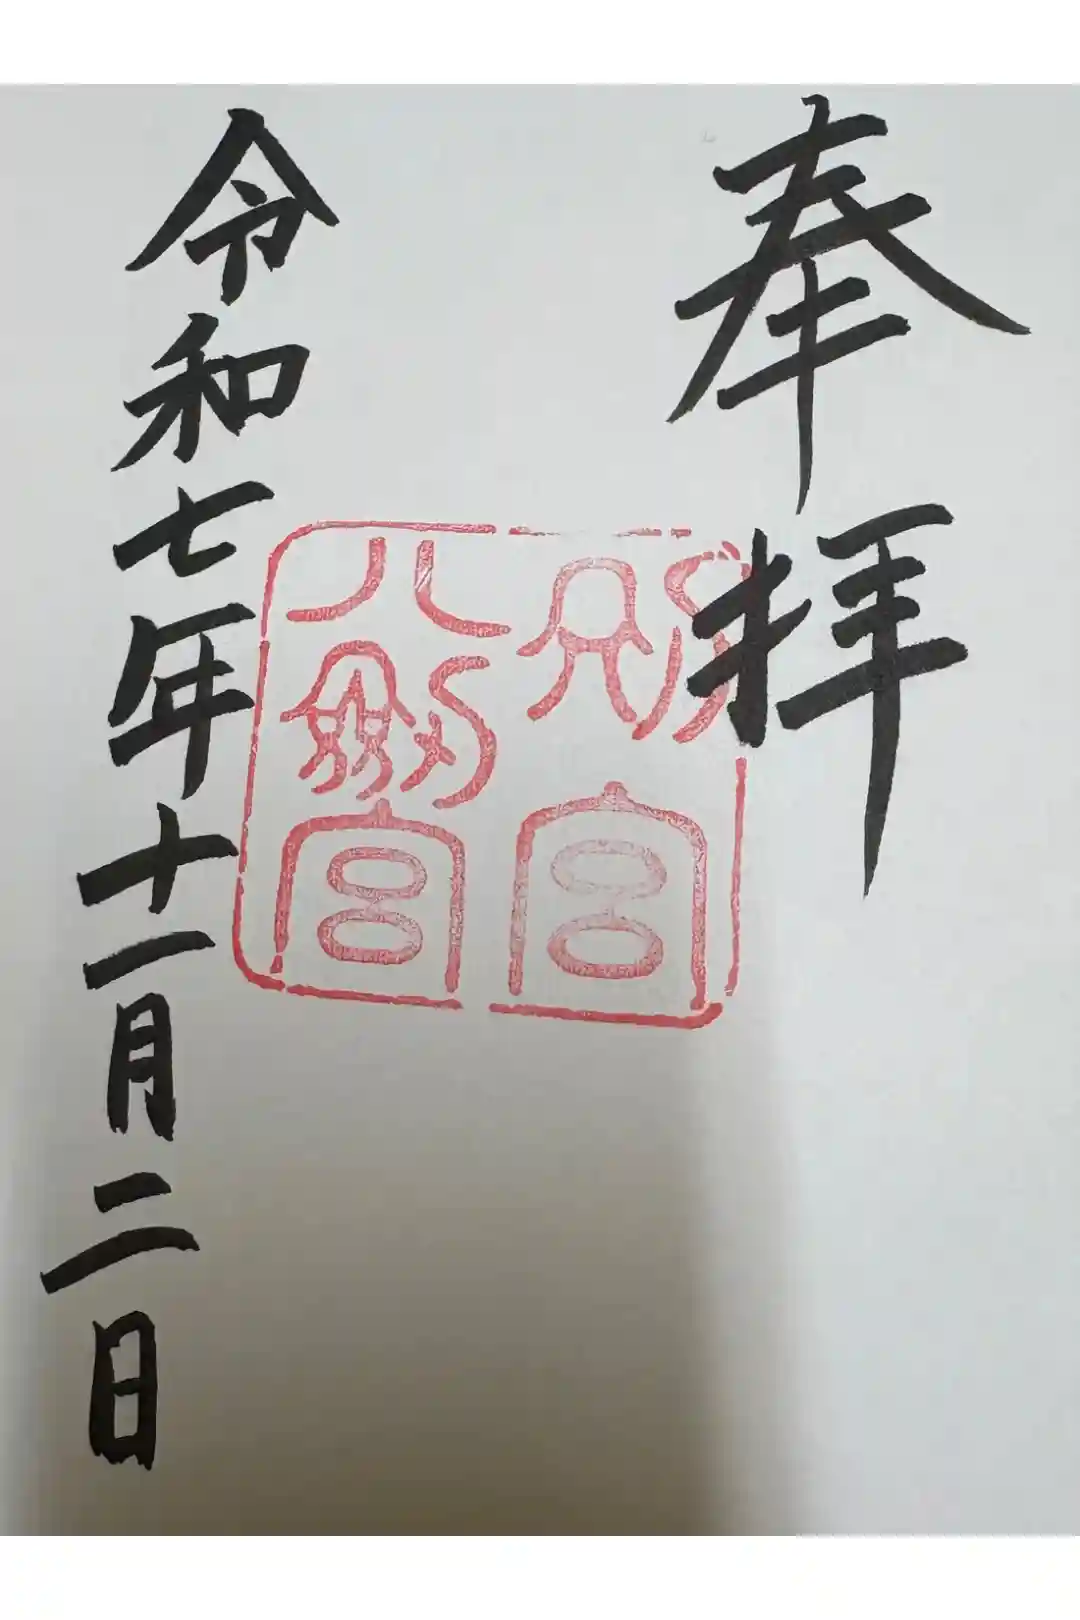 奉拝
別宮
八劔宮
令和七年十一月二日